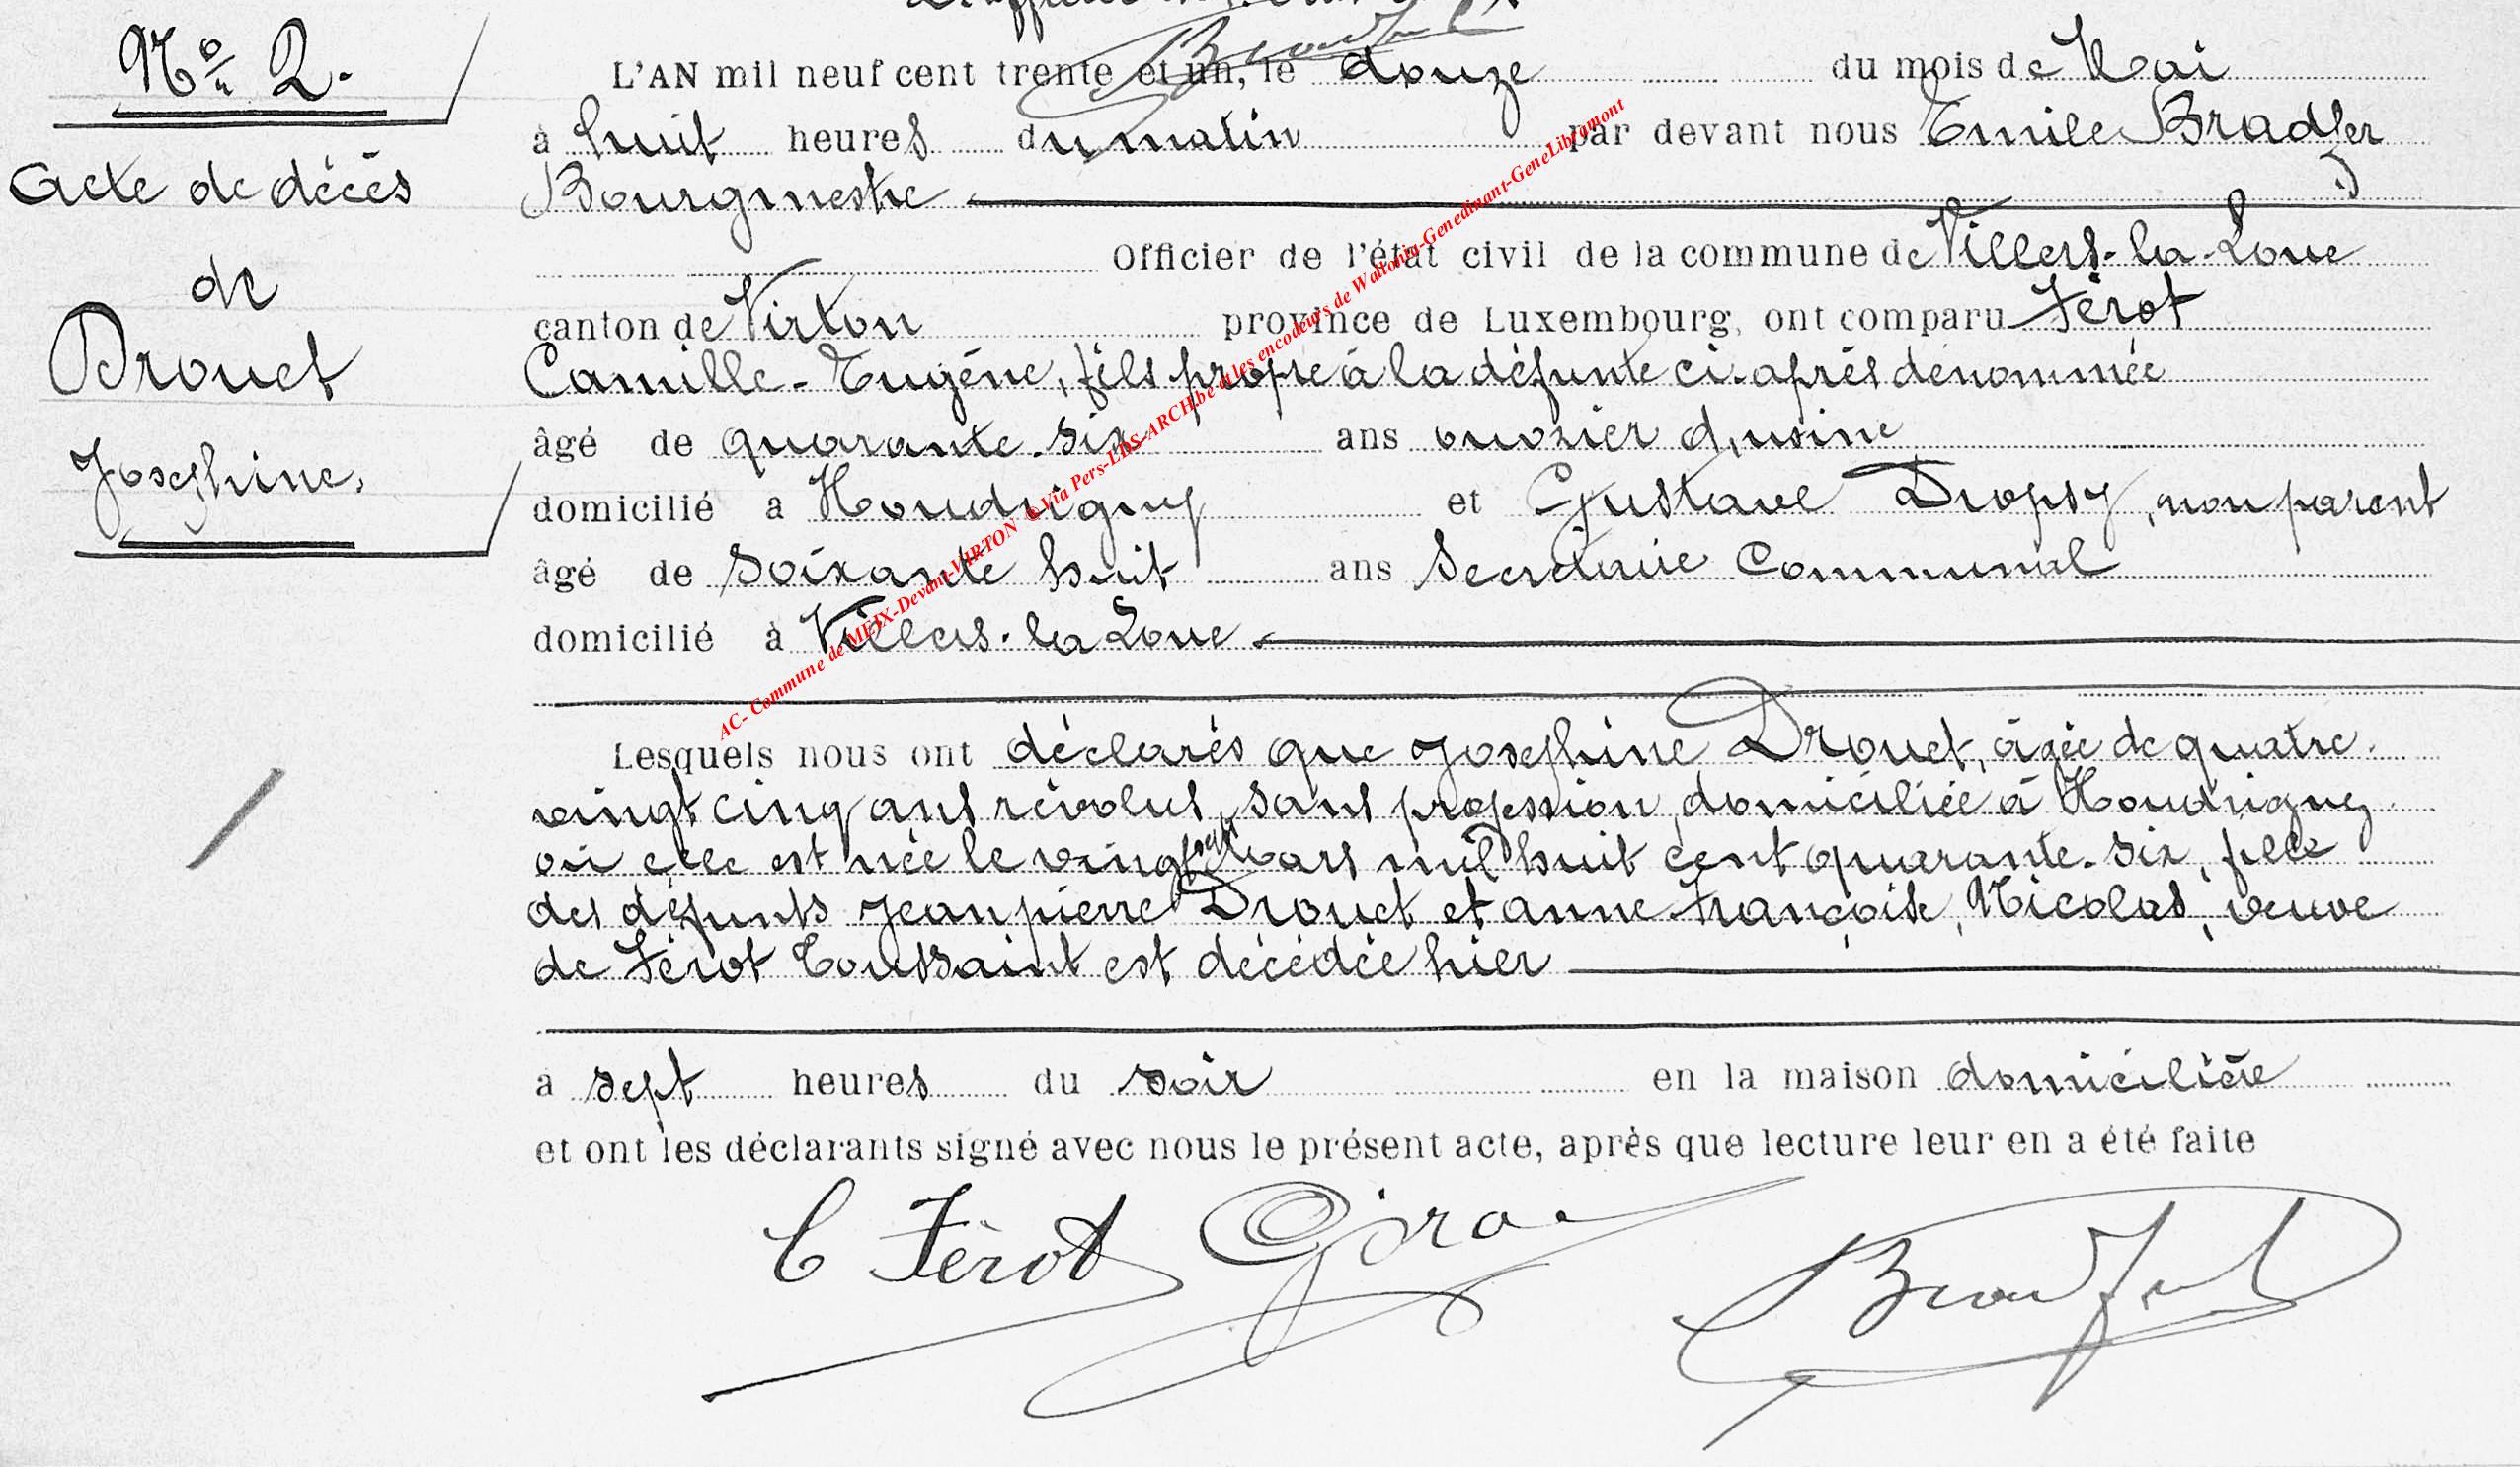 N° 2.
Acte de décès
de
Drouet
Josephine.
L'AN mil neuf cent trente et un, le douze du mois de Mai
à huit heures du matin par devant nous Emile Bradfer
Bourgmestre
Officier de l'état civil de la commune de Villers-la-Loue
canton de Virton province de Luxembourg, ont comparu Férot
Camille-Eugène, fils propre à la défunte ci-après dénommée
âgé de quarante-six ans ouvrier d'usine
domicilié à Houdrigny et Gustave Dropsy, non parent
âgé de soixante huit ans Secrétaire Communal
domicilié à Villers-la-Loue
Lesquels nous ont déclarés que Josephine Drouet, âgée de quatre-
vingt cinq ans révolus, sans profession, domiciliée à Houdrigny
où elle est née le vingt sept Mars mil huit cent quarante-six, fille
des défunts Jean pierre Drouet et anne-Françoise, Nicolas, veuve
de Férot Toussaint est décédée hier
à sept heures du soir en la maison domicilière
et ont les déclarants signé avec nous le présent acte, après que lecture leur en a été faite
C Férot
Bradfer
AC- Commune de MEIX-Devant-VIRTON © Via Pers-LDS-ARCH.be et les encodeurs de Wallonia-Genedinant-GeneLibramont